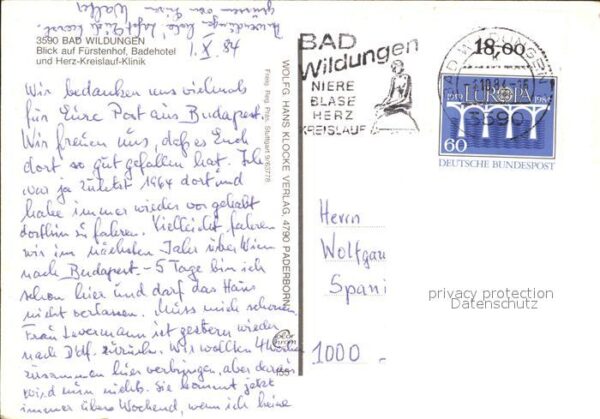 3590 BAD WILDUNGEN
Blick auf Fürstenhof, Badehotel
und Herz-Kreislauf-Klinik
1. X. 84
Wir bedanken uns vielmals
für Eure Post aus Budapest.
Wir freuen uns, daß es Euch
dort so gut gefallen hat. Ich
war ja zuletzt 1964 dort und
habe immer wieder vor gehabt
dorthin zu fahren. Vielleicht fahren
wir im nächsten Jahr über Wien
nach Budapest. - 5 Tage bin ich
schon hier und darf das Haus
nicht verlassen. Muss mich schonen.
Frau Levermann ist gestern wieder
nach Ddf. zurück. Wir wollten 4 Wochen
zusammen hier verbringen, aber daraus
wird nun nichts. Sie kommt jetzt
immer übers Wochenend, wenn ich keine
grüssen von Ihrem Walter
WOLFG. HANS KLOCKE VERLAG, 4790 PADERBORN
Freig. Reg. Präs. Stuttgart 9/63778
BAD
Wildungen
NIERE
BLASE
HERZ
KREISLAUF
18,00
BAD WILDUNGEN
3590
1959 EUROPA 1984
60
DEUTSCHE BUNDESPOST
Herrn
Wolfgan
Spani
1000
privacy protection
Datenschutz